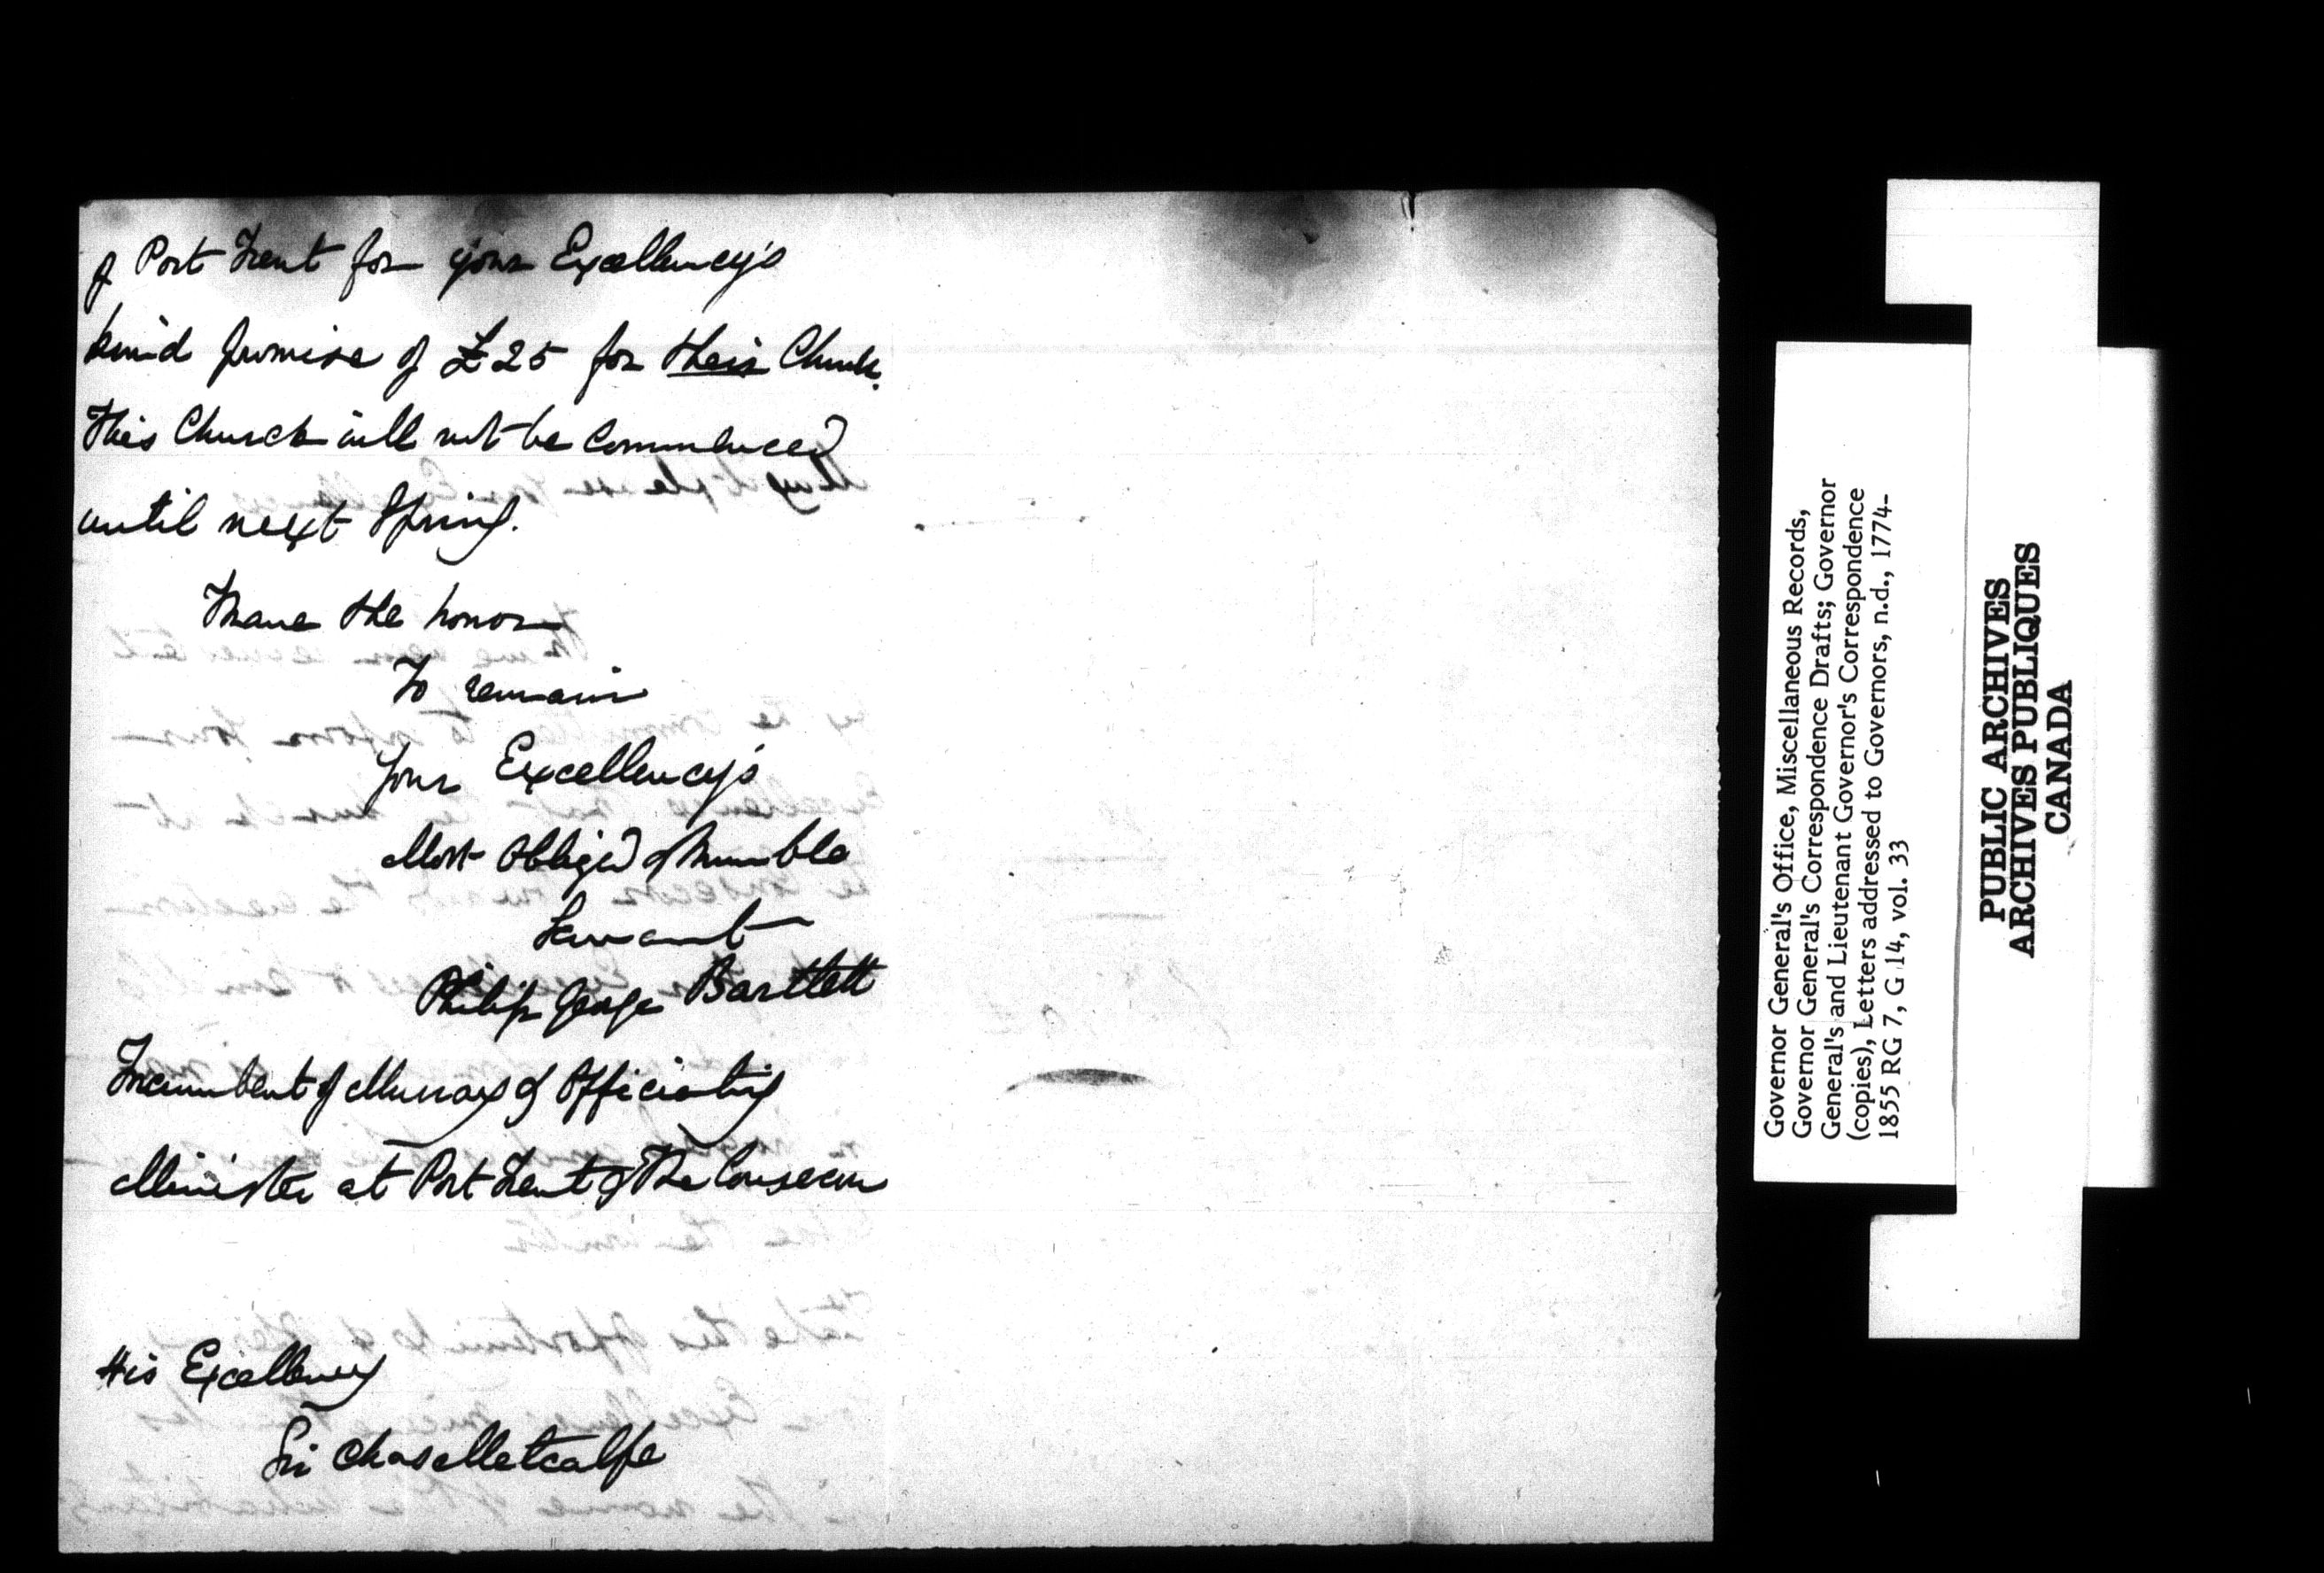 of Port Trent for your Excellency's
kind promise of £25 for their Church.
This Church will not be Commenced
until next Spring.
I have the honor
To remain
Your Excellency's
Most Obliged & humble
Servant
Philip George Bartlett
Incumbent of Murray & Officiating
Minister at Port Trent & The Consecon
His Excellency
Sir Chas Metcalfe
Governor General's Office, Miscellaneous Records,
Governor General's Correspondence Drafts; Governor
General's and Lieutenant Governor's Correspondence
(copies), Letters addressed to Governors, n.d., 1774-
1855 RG 7, G 14, vol. 33
PUBLIC ARCHIVES
ARCHIVES PUBLIQUES
CANADA